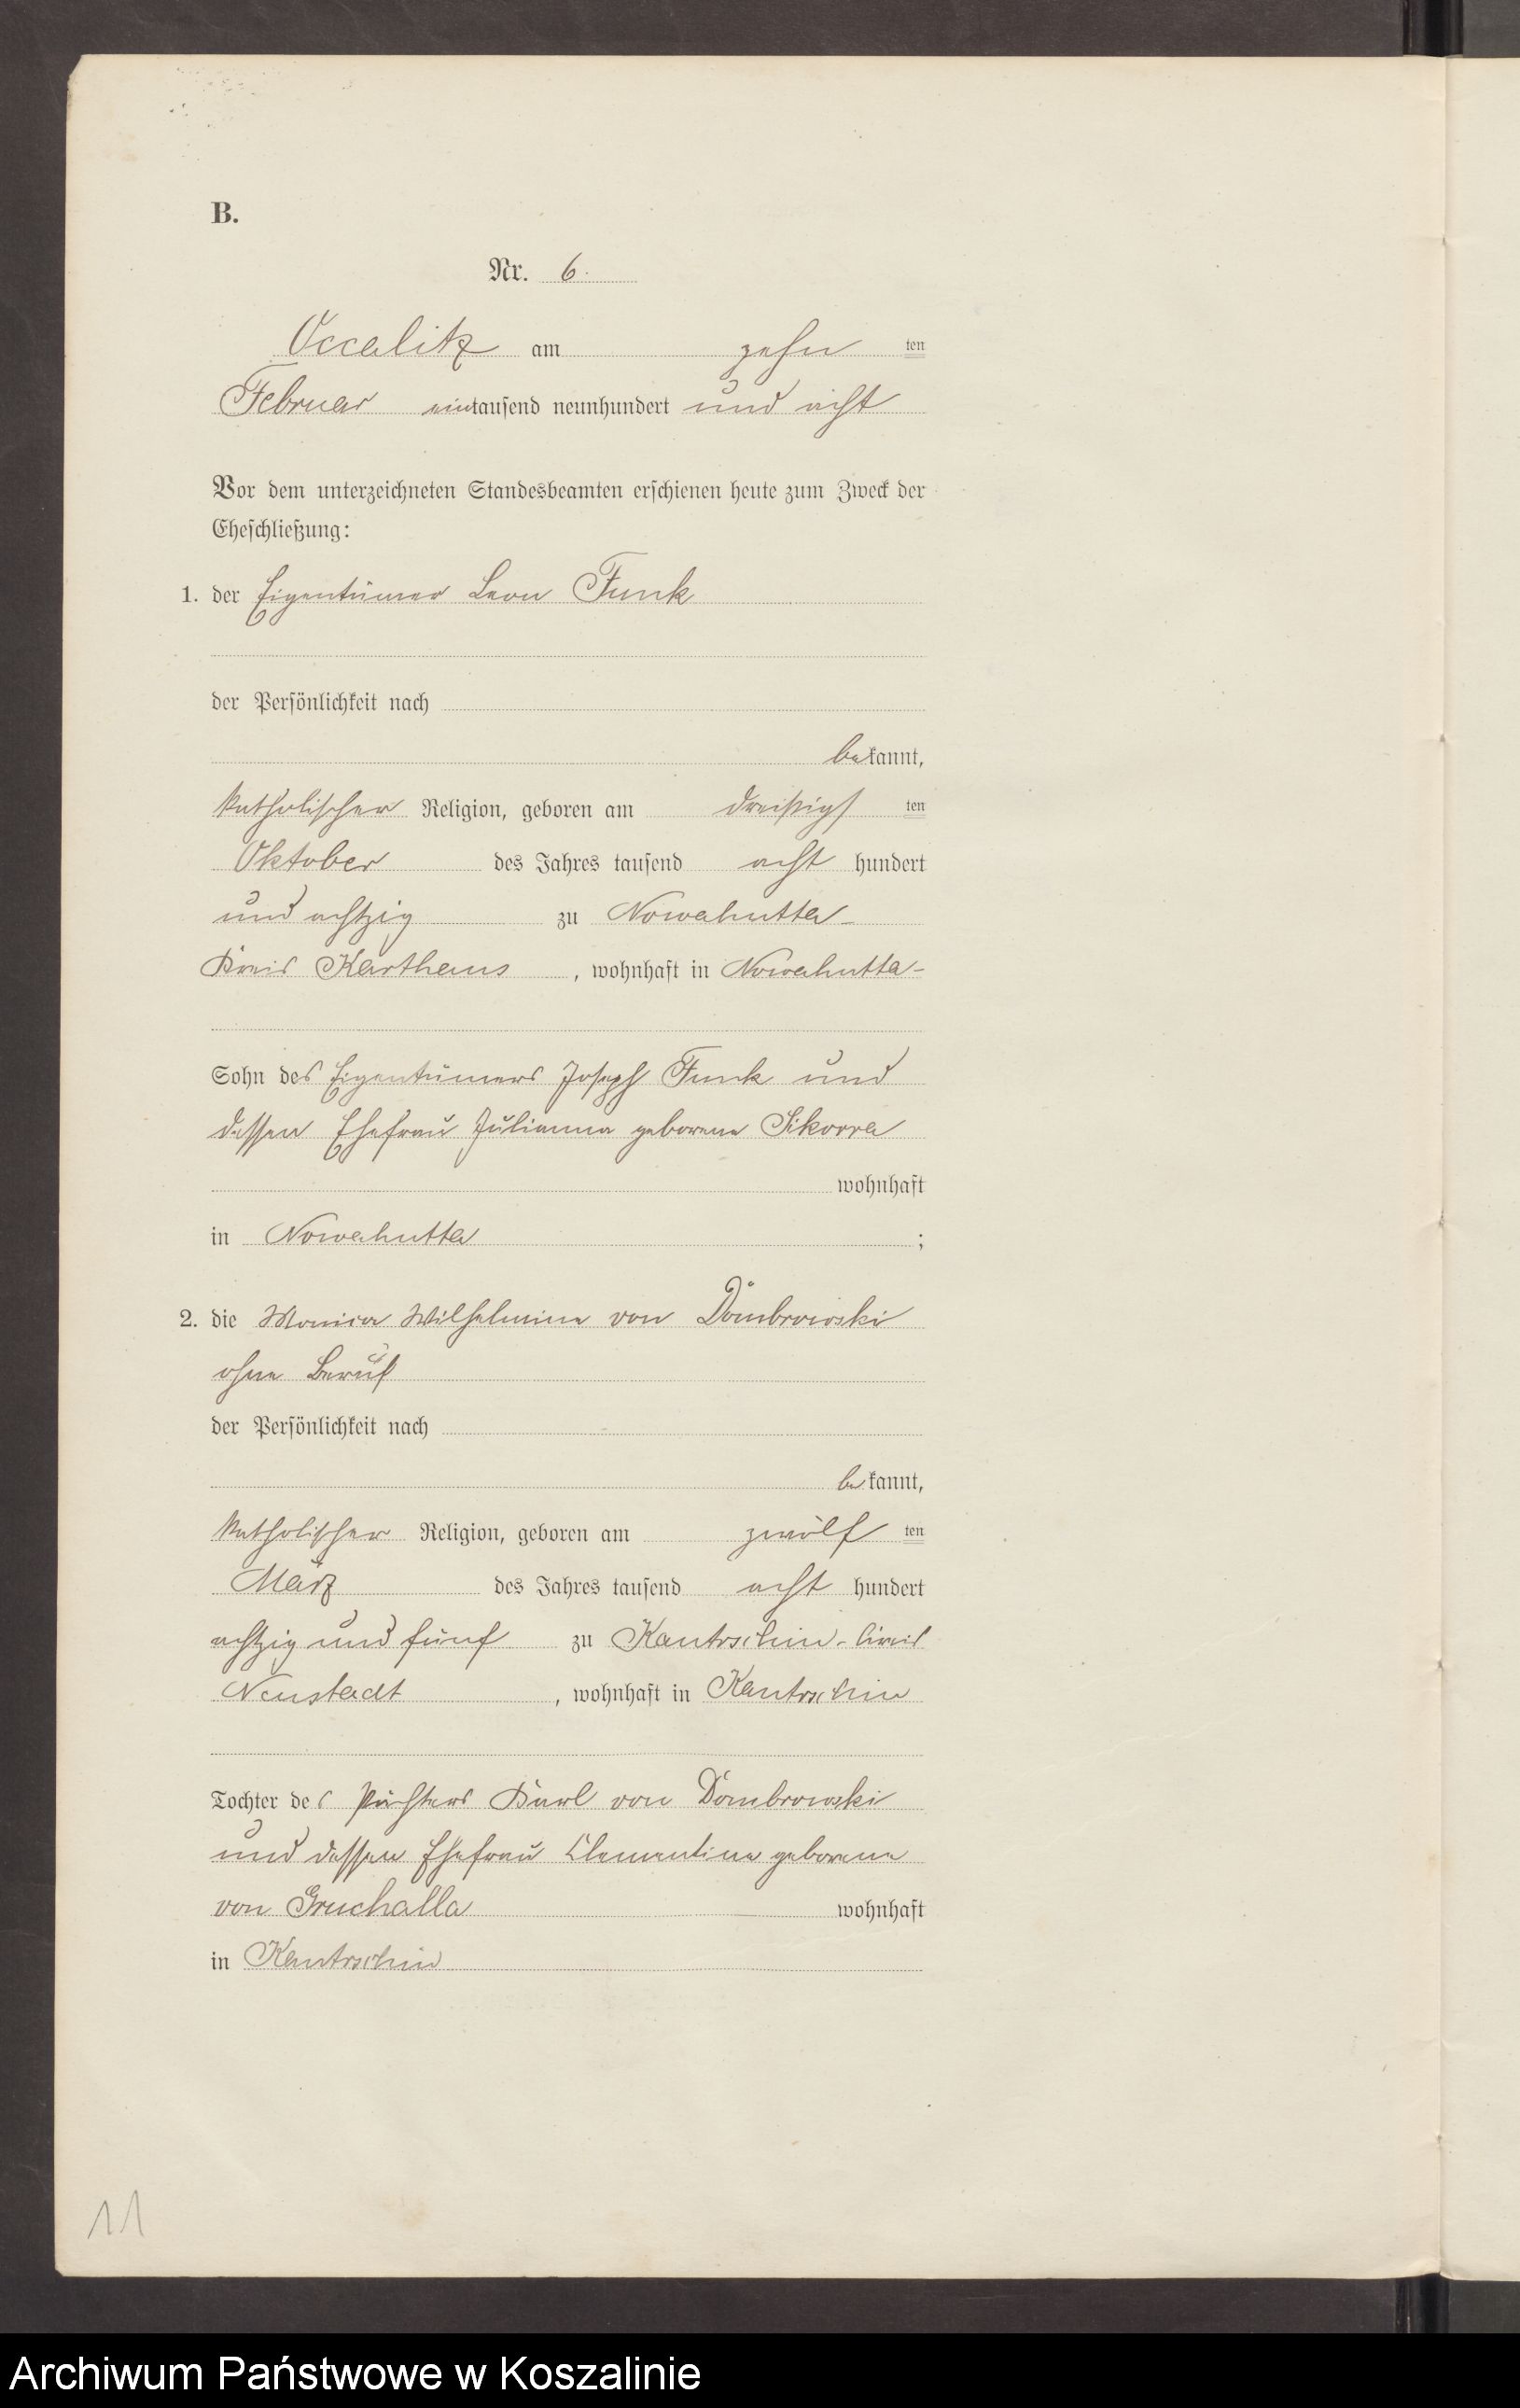 B.
Nr. 6.
Occalitz am zehn ten
Februar eintausend neunhundert und acht
Vor dem unterzeichneten Standesbeamten erschienen heute zum Zweck der
Eheschließung:
1. der Eigentümer Leon Funk
der Persönlichkeit nach
bekannt,
katholischer Religion, geboren am dreißigs ten
Oktober des Jahres tausend acht hundert
und achtzig zu Nowahutta
Kreis Karthaus, wohnhaft in Nowahutta
Sohn des Eigentümers Joseph Funk und
dessen Ehefrau Julianna geborene Sikorra
wohnhaft
in Nowahutta ;
2. die Monica Wilhelmine von Dombrowski
ohne Beruf
der Persönlichkeit nach
bekannt,
katholischer Religion, geboren am zwölf ten
März des Jahres tausend acht hundert
achtzig und fünf zu Kantrschin - Kreis
Neustadt, wohnhaft in Kantrschin
Tochter des Pächters Karl von Dombrowski
und dessen Ehefrau Clementine geborene
von Gruchalla wohnhaft
in Kantrschin
11
Archiwum Państwowe w Koszalinie